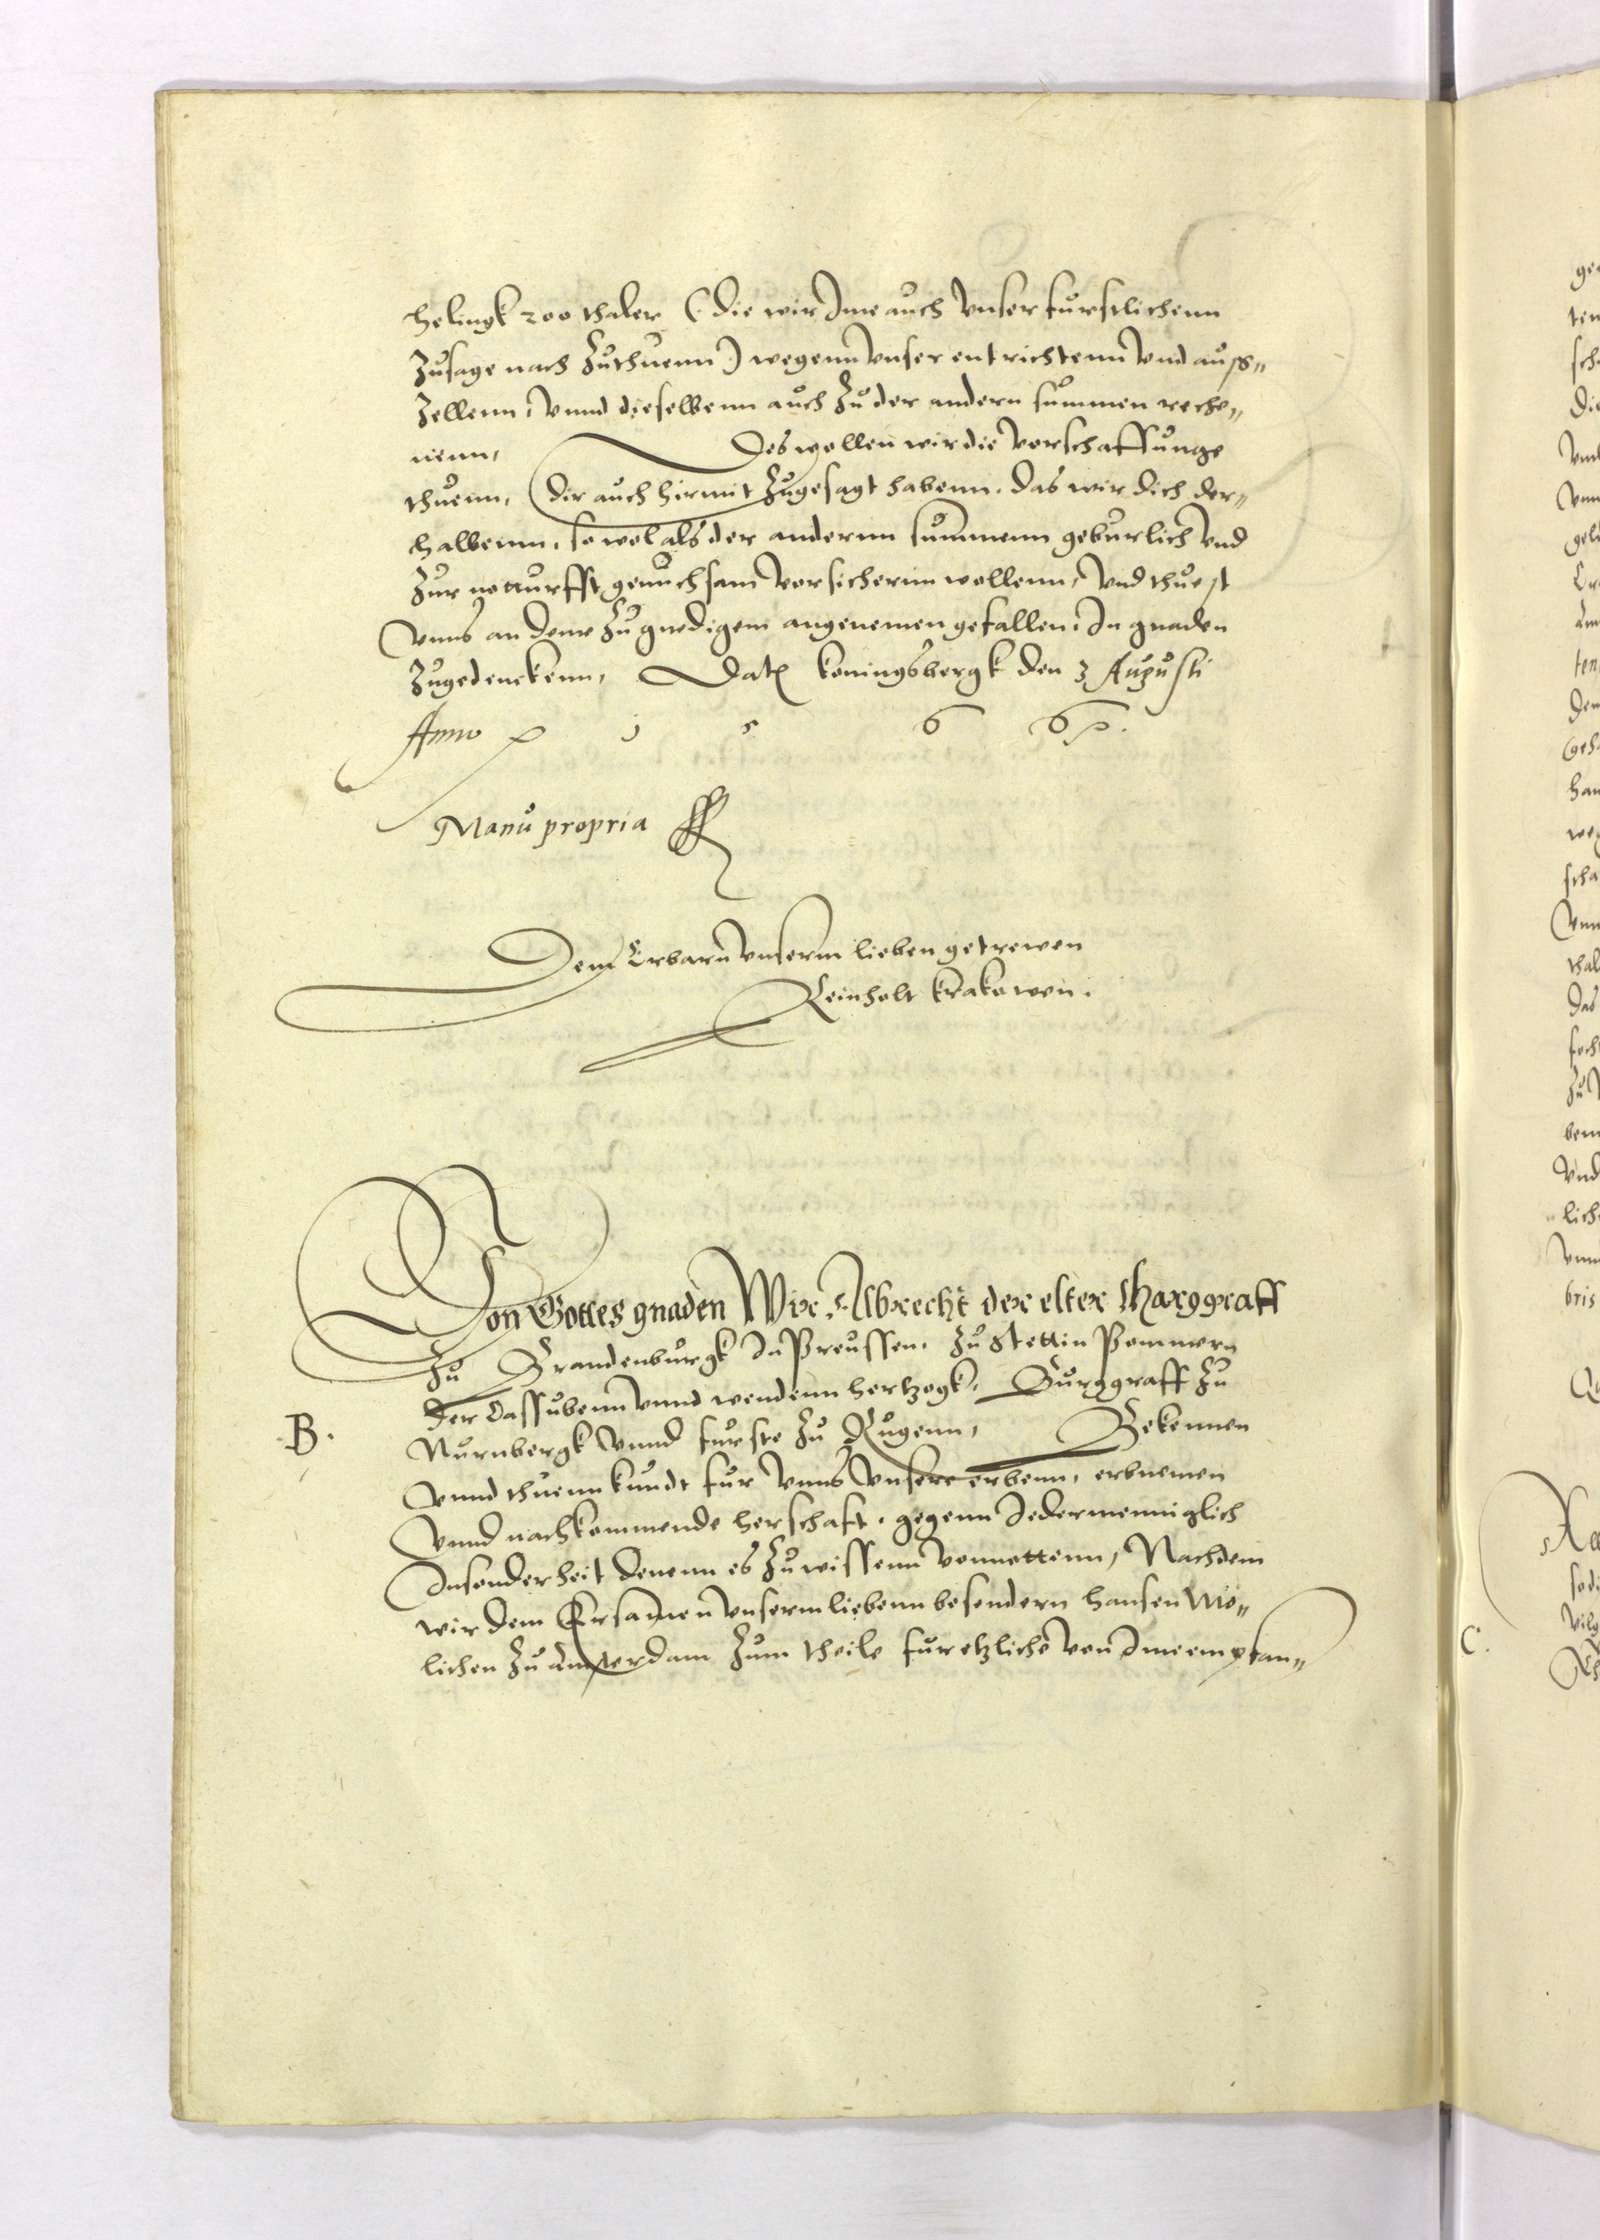 helingk 200 thaler (die wir Ime auch Vnser furstlichenn
Zusage nach Zuthuenn) wegenn Vnser entrichtenn Vnd auß„
Zellenn, Vnnd dieselbenn auch Zu der andern summen reche„
nenn, Des wollen wir die Vorschaffunge
thuenn, Dir auch hirmit Zugesagt habenn. das wir dich der„
halbenn, so wol als der andernn summenn geburlich Vnd
Zur notturfft genuchsam Vorsichernn wollenn, Vnd thuest
Vnns an deme Zu gnedigem angenemen gefallen, In gnaden
Zugedenckenn, Dat. koningsbergk den 3 Augusti
Anno 1 5 6 6
Manu propria
Dem Erbarn Vnserm lieben getrewen
Reinholt Krakowen.
Von Gottes gnaden Wir Albrecht der elter Marggraff
Zu Brandenburgk In Preussen, Zu Stettin Pommern
der Cassubenn Vnnd wendenn hertzogk, Burggraff Zu
B.
Nurnbergk Vnnd furste Zu Rugenn, Bekennen
Vnnd thuenn kundt fur Vnns Vnsere erbenn, erbnemen
Vnnd nachkommende herschaft, gegenn Idermenniglich
Insonderheit denenn es Zuwissenn vonnottenn, Nachdem
wir dem Ersamen Vnserm liebenn besondern hansen Mo„
lichen Zu Amsterdam Zum theile fur etzliche von Ime empfan„
C.